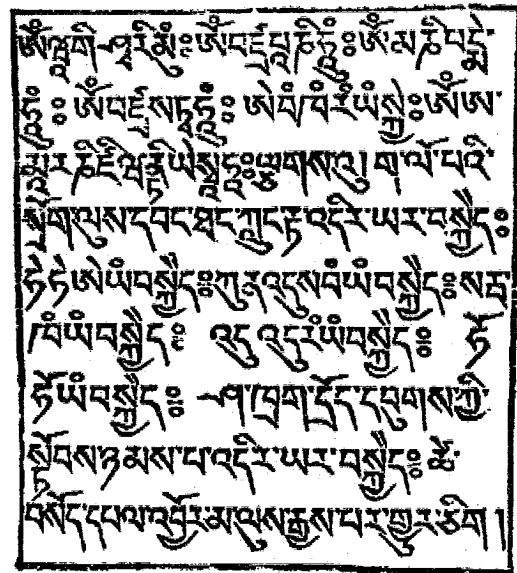 ཨོཾ་ཝཱ་གི་ཤྭ་རི་མུཾ༔ཨོཾ་བཛྲ་པཱ་ཎི་ཧཱུྃ༔ཨོཾ་མ་ཎི་པདྨེ་
ཧཱུྃ༔ ཨོཾ་བཛྲ་སཏྭ་ཧཱུྃ༔ ཨེ་བཾ་ཁཾ་རཾ་ཡཾ་སྭཱ༔ཨོཾ་ཨ་
ར་ཎི་ཛི་ཝནྟི་ཡེ་སྭཱཧཱ༔
སྲོག་ལུས་དབང་ཐང་ཀླུང་རྟ་འདིར་ཡར་བསྐྱེད༔
ཧོ་ཧོ་ཨེ་ཡཾ་བསྐྱེད༔ཀུན་འདུས་བཾ་ཡཾ་བསྐྱེད༔སརྦ་
ཁཾ་ཡཾ་བསྐྱེད༔ འདུ་འདུ་རཾ་ཡཾ་བསྐྱེད༔ ཧོ་
ཧོ་ཡཾ་བསྐྱེད༔ ཤ་ཁྲག་དྲོད་དབུགས་ཀྱི་
སྟོབས་ཉམས་པ་འདིར་ཡར་བསྐྱེད༔ཚེ་
བསོད་དཔལ་འབྱོར་མ་ལུས་རྒྱས་པར་གྱུར་ཅིག །